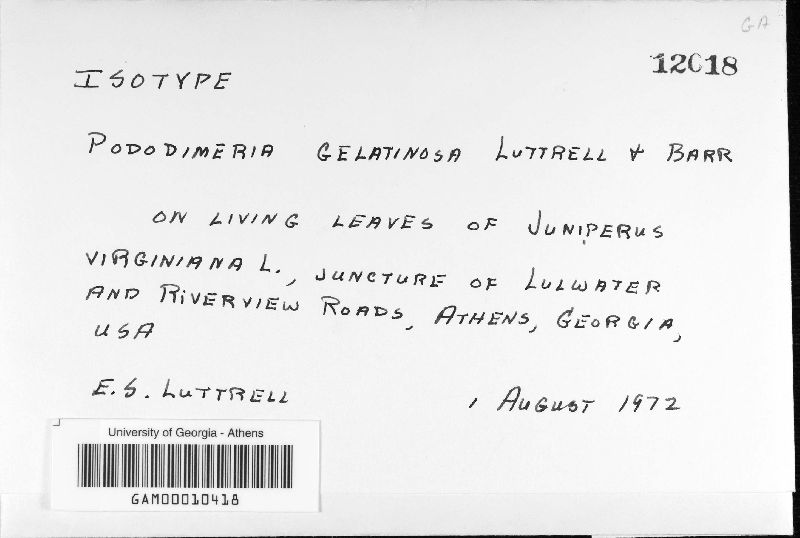 GA
12018
ISOTYPE
PODODIMERIA GELATINOSA LUTTRELL & BARR
ON LIVING LEAVES OF JUNIPERUS
VIRGINIANA L., JUNCTURE OF LULWATER
AND RIVERVIEW ROADS, ATHENS, GEORGIA,
USA
E.S. LUTTRELL 1 AUGUST 1972
University of Georgia - Athens
GAM00010418